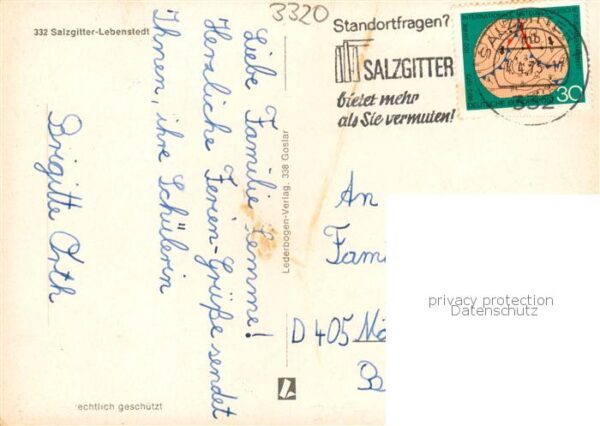 3320
332 Salzgitter-Lebenstedt
Liebe Familie Lemme!
Herzliche Ferien-Grüße sendet
Ihnen, ihre Schülerin
Brigitte Orth
Lederbogen-Verlag, 338 Goslar
rechtlich geschützt
Standortfragen?
SALZGITTER
bietet mehr
als Sie vermuten!
SALZGITTER
DEUTSCHE BUNDESPOST
30
An
Fami
D 405 Mö
privacy protection
Datenschutz